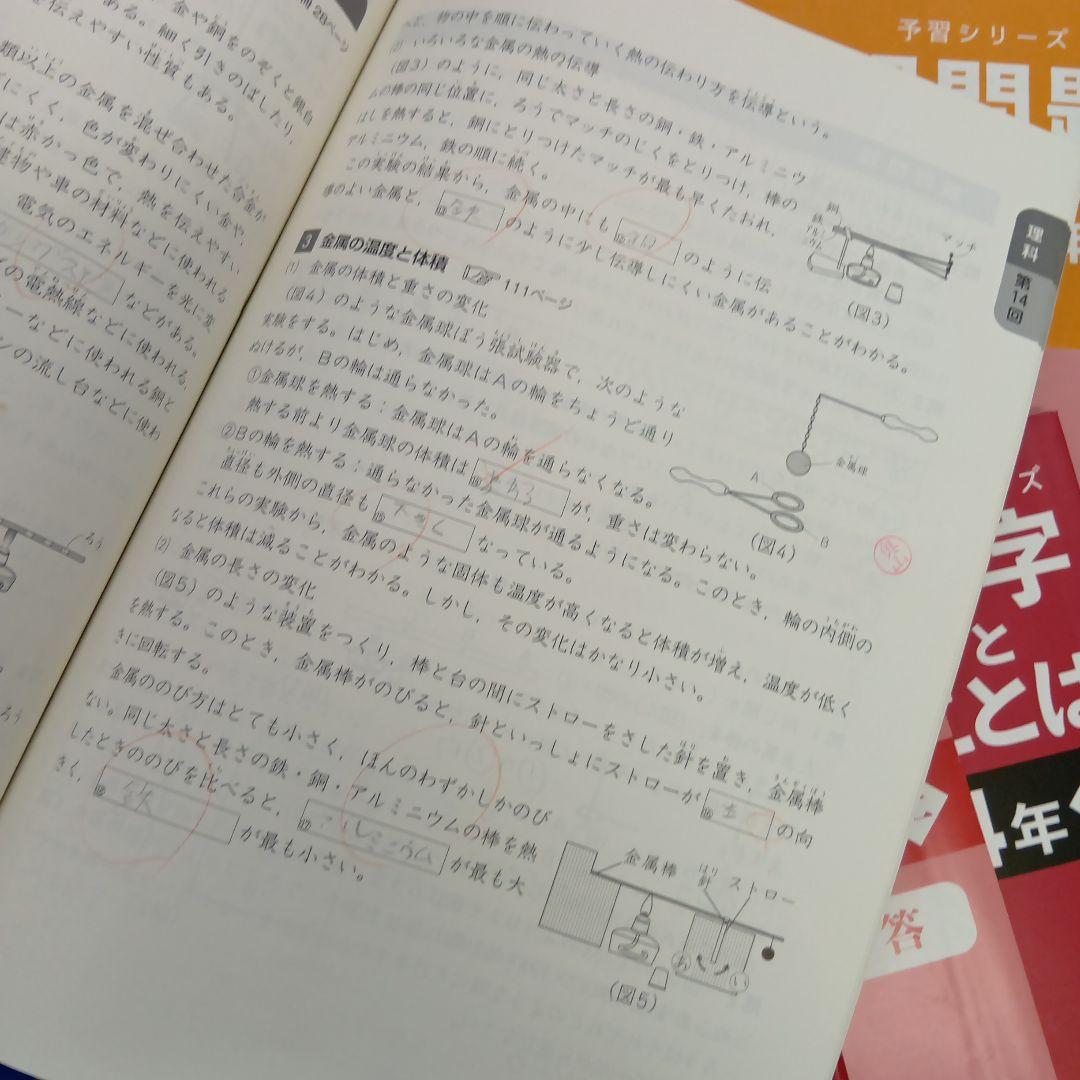 28ページ
金や銅をのぞくと銀白
ある。細く引きのばしたり、
を伝えやすい性質もある。
類以上の金属を混ぜ合わせた合金が
にくく、色が変わりにくい金や、
は赤かっ色で、熱を伝えやすい
建物や車の材料などに使われる
電気のエネルギーを光に変
などがある。
の電熱線などに使われる、
ーなどに使われる銅と
ンの流し台などに使わ
ろう
ろう
物の中を順に伝わっていく熱の伝わり方を伝導という。
(2) いろいろな金属の熱の伝導
(図3)のように、同じ太さと長さの銅・鉄・アルミニウ
ムの棒の同じ位置に、ろうでマッチのじくをとりつけ、棒の
はしを熱すると、銅にとりつけたマッチが最も早くたおれ、
アルミニウム、鉄の順に続く。
この実験の結果から、金属の中にも 銅 のように伝
導のよい金属と、 鉄 のように少し伝導しにくい金属があることがわかる。
銅
鉄
アルミニウム
マッチ
(図3)
理科
第14回
3 金属の温度と体積 111ページ
(1) 金属の体積と重さの変化
(図4)のような金属球ぼう張試験器で、次のような
実験をする。はじめ、金属球はAの輪をちょうど通り
ぬけるが、Bの輪は通らなかった。
①金属球を熱する：金属球はAの輪を通らなくなる。
熱する前より金属球の体積は が、重さは変わらない。
②Bの輪を熱する：通らなかった金属球が通るようになる。このとき、輪の内側の
直径も外側の直径も 大きく なっている。
これらの実験から、金属のような固体も温度が高くなると体積が増え、温度が低く
なると体積は減ることがわかる。しかし、その変化はかなり小さい。
金属球
A
B
(図4)
(2) 金属の長さの変化
(図5)のような装置をつくり、棒と台の間にストローをさした針を置き、金属棒
を熱する。このとき、金属棒がのびると、針といっしょにストローが の向
きに回転する。
金属ののび方はとても小さく、ほんのわずかしかのび
ない。同じ太さと長さの鉄・銅・アルミニウムの棒を熱
したときののびを比べると、 アルミニウム が最も大
きく、 鉄 が最も小さい。
金属棒
針
ストロー
あ
い
(図5)
予習シリーズ
ズ
字
と
とは
4年
答